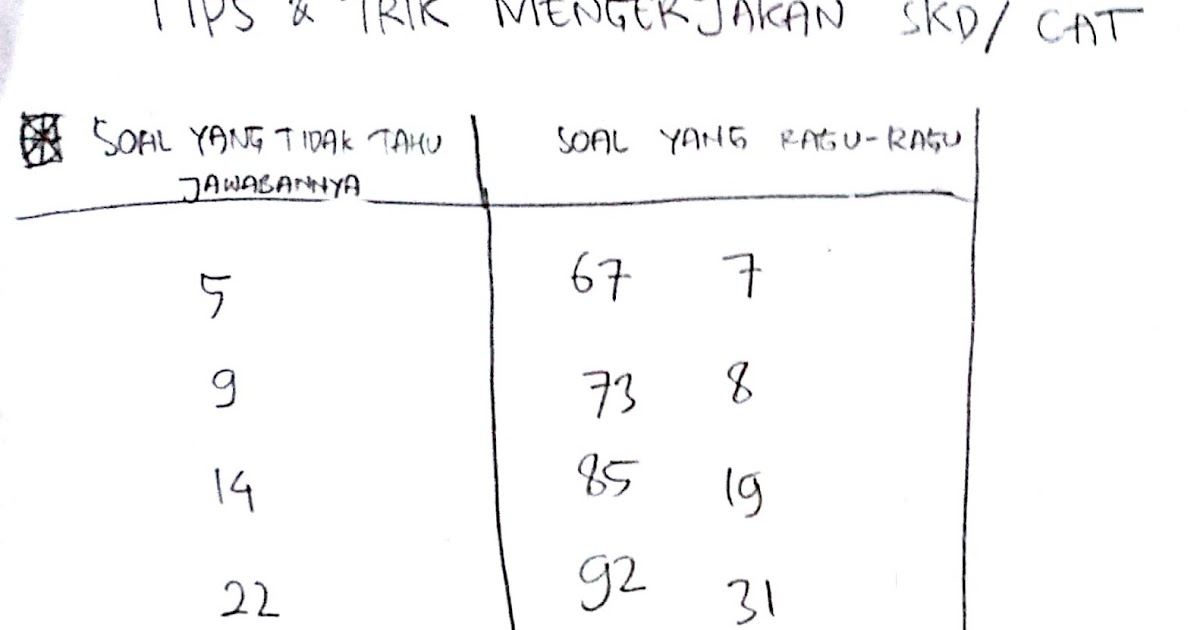 TIPS & TRIK MENGERJAKAN SKD/ CAT
SOAL YANG TIDAK TAHU
JAWABANNYA
SOAL YANG RAGU-RAGU
5
67 7
9
73 8
14
85 19
22
92 31